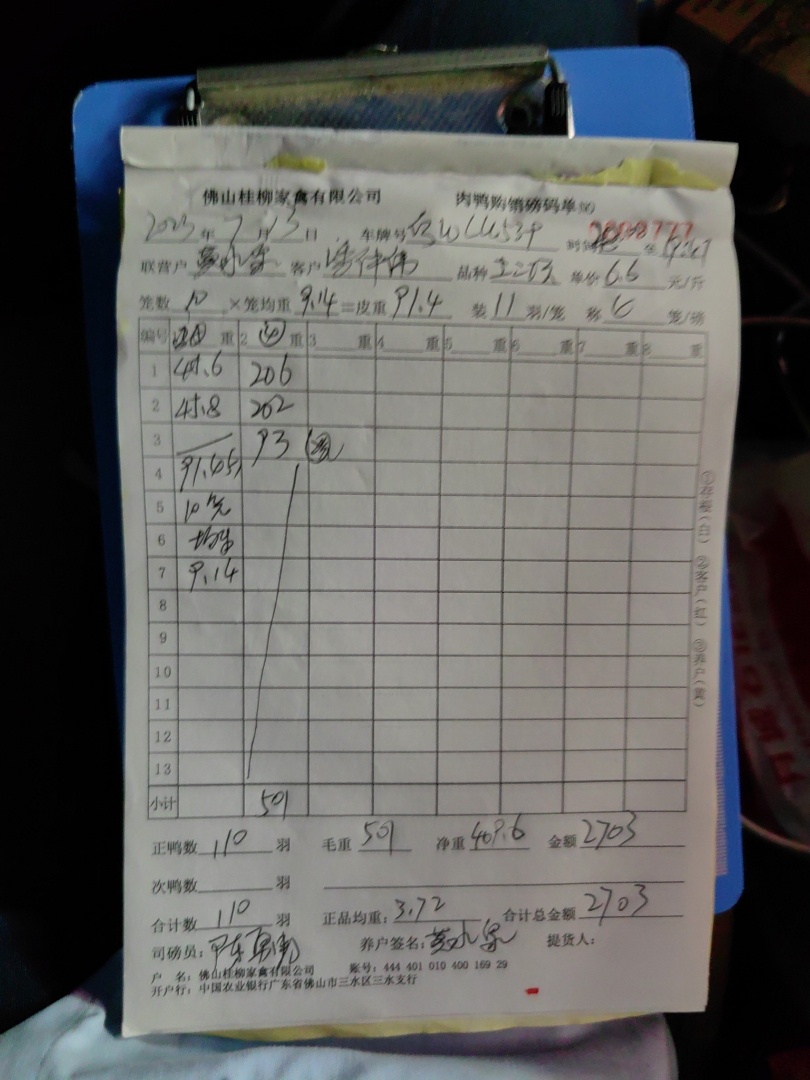 佛山桂柳家禽有限公司 肉鸭购销磅码单 NO 0808777
2023年7月13日 车牌号 时间 至
联营户 客户 品种 单价 6.6 元/斤
笼数 10 ×笼均重 9.14 =皮重 91.4 装 11 羽/笼 称 6 笼/磅
编号 重 2 重 3 重 4 重 5 重 6 重 7 重 8 重
1 45.6 206
2 45.8 202
3 93
4 91.45
5 10
6
7 9.14
8
9
10
11
12
13
小计 501
正鸭数 110 羽 毛重 501 净重 409.6 金额 2703
次鸭数 羽
合计数 110 羽 正品均重: 3.72 合计总金额 2703
司磅员: 养户签名: 提货人:
户 名: 佛山桂柳家禽有限公司 账号: 444 401 010 400 169 29
开户行: 中国农业银行广东省佛山市三水区三水支行
①存根(白) ②客户(红) ③养户(黄)